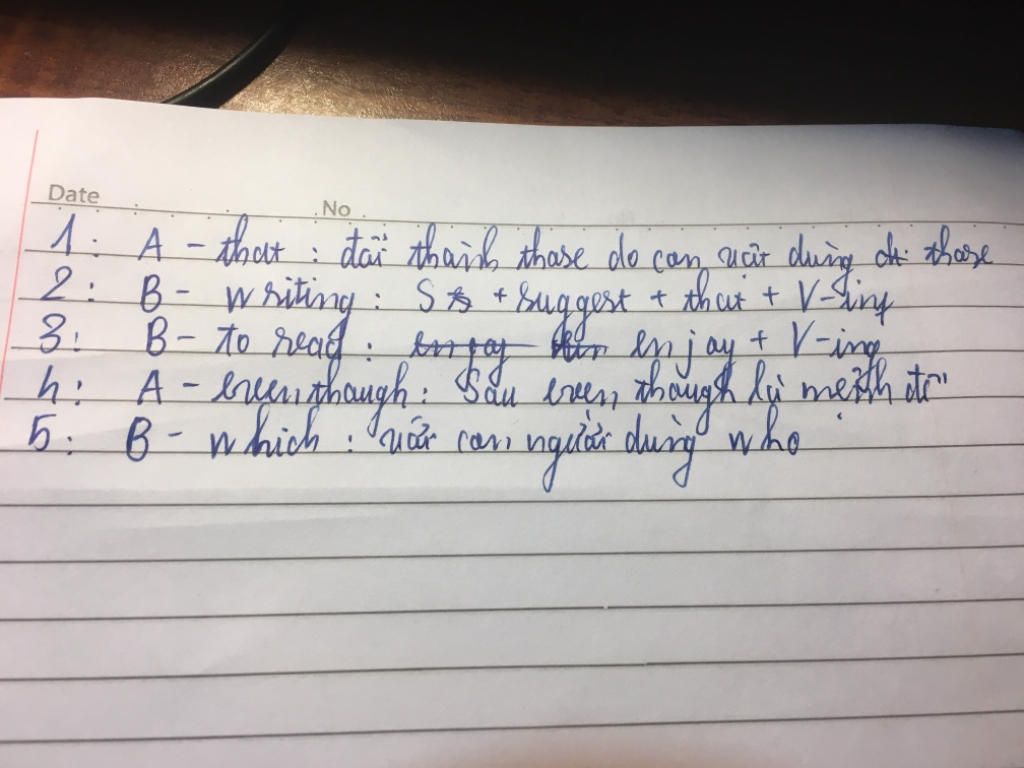 Date
No
1: A - that : đổi thành those do con vật dùng those
2: B - writing : S + suggest + that + V-ing
3: B - to read : enjoy + V-ing
4: A - even though : Sau even though là mệnh đề
5: B - which : với con người dùng who